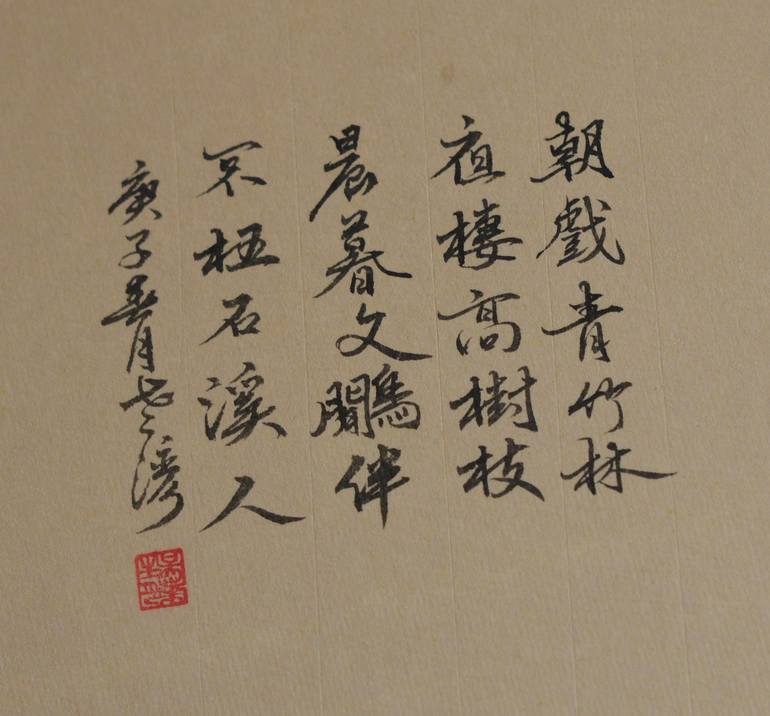 朝戲青竹林
夜棲高樹枝
晨暮文鷴伴
不枉石溪人
庚子春月